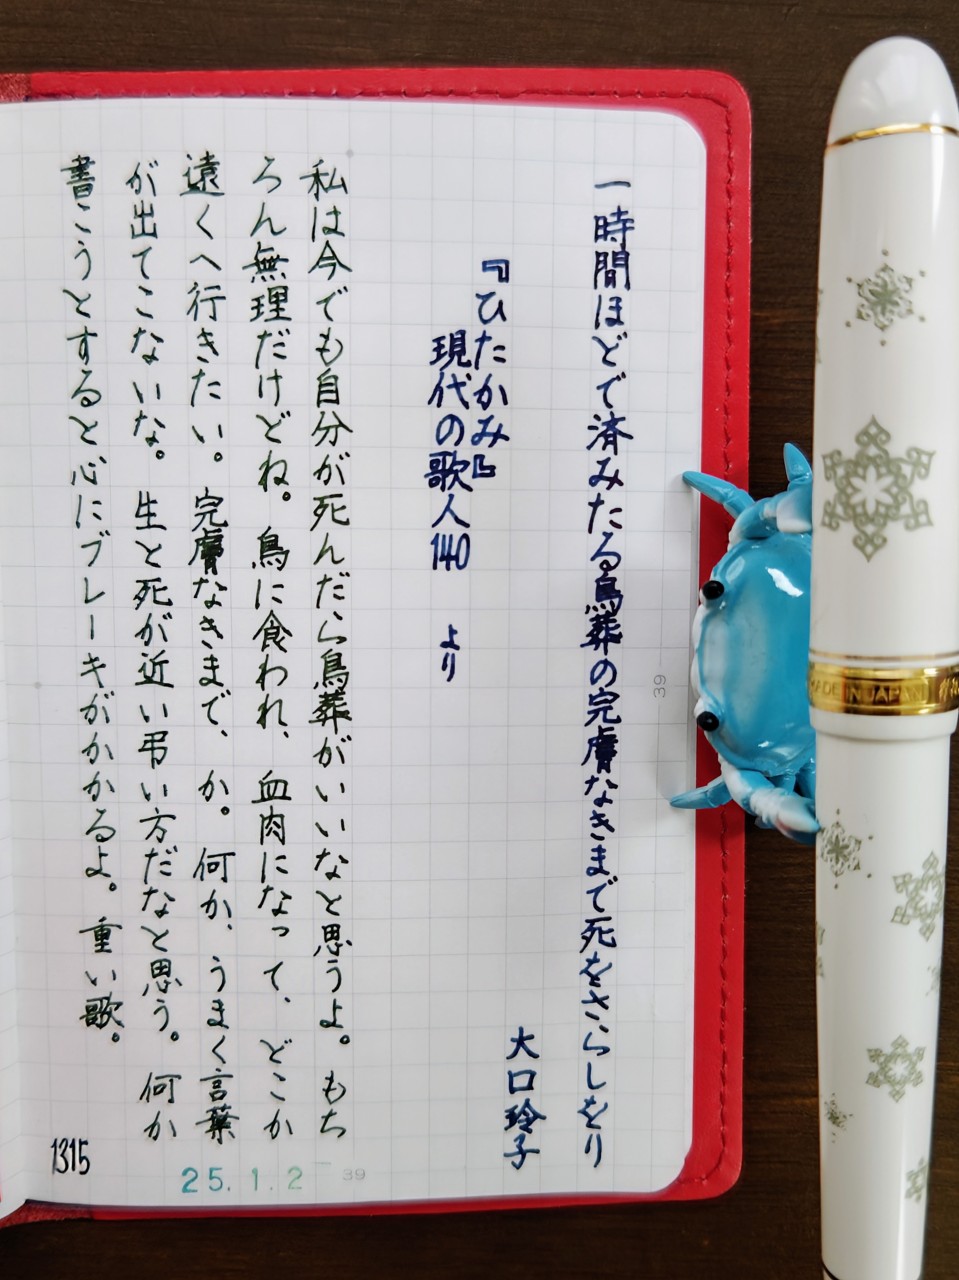 一時間ほどで済みたる鳥葬の完膚なきまで死をさらしをり
大口玲子
『ひたかみ』
現代の歌人140 より
私は今でも自分が死んだら鳥葬がいいなと思うよ。もち
ろん無理だけどね。鳥に食われ、血肉になって、どこか
遠くへ行きたい。完膚なきまで、か。何か、うまく言葉
が出てこないな。生と死が近い弔い方だなと思う。何か
書こうとすると心にブレーキがかかるよ。重い歌。
1315
25.1.2
39
39
MADE IN JAPAN